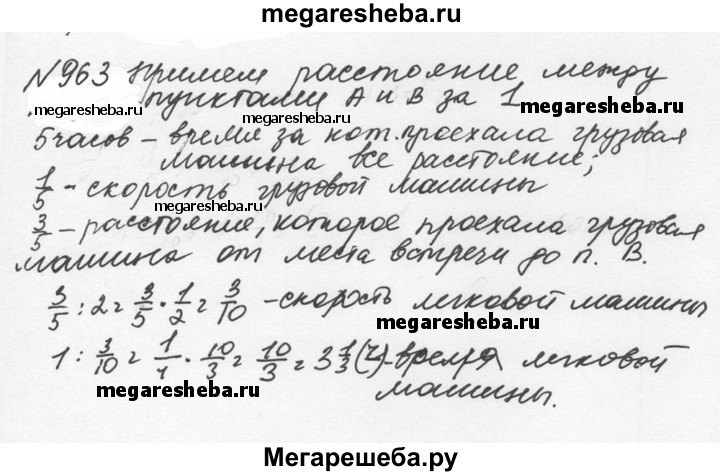 megaresheba.ru
N963 Примем расстояние между
пунктами А и В за 1
megaresheba.ru
megaresheba.ru
5 часов - время за кот. проехала грузовая
машина все расстояние;
1/5 - скорость грузовой машины
megaresheba.ru
3/5 - расстояние, которое проехала грузовая
машина от места встречи до п. В.
3/5 : 2 = 3/5 · 1/2 = 3/10 - скорость легковой машины
megaresheba.ru
1 : 3/10 = 1/1 · 10/3 = 10/3 = 3 1/3 (ч) - время легковой
машины.
megaresheba.ru
Мегарешеба.ру